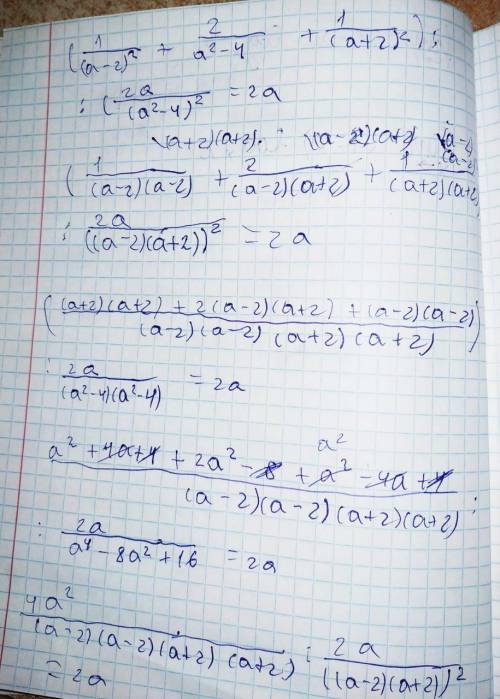 ( 1/(a-2)² + 2/(a²-4) + 1/(a+2)² ) :
: ( 2a/(a²-4)² = 2a
\(a+2)(a+2). \((a-2)(a+2) \(a-2)(a-2)
( 1/((a-2)(a-2)) + 2/((a-2)(a+2)) + 1/((a+2)(a+2))
: 2a/((a-2)(a+2))² = 2a
( ((a+2)(a+2) + 2(a-2)(a+2) + (a-2)(a-2))/((a-2)(a-2)(a+2)(a+2)) )
: 2a/((a²-4)(a²-4)) = 2a
a²
(a² + 4a + 4 + 2a² - 8 + a² - 4a + 4)/((a-2)(a-2)(a+2)(a+2)) :
: 2a/(a⁴ - 8a² + 16) = 2a
4a²/((a-2)(a-2)(a+2)(a+2)) : 2a/((a-2)(a+2))²
= 2a